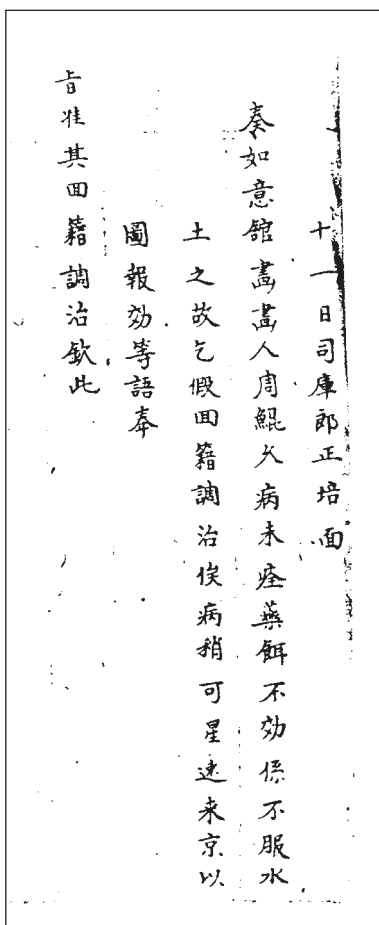 十一日司庫郎正培面
奏如意館畫畫人周鯤久病未痊藥餌不効係不服水
土之故乞假回籍調治俟病稍可星速来京以
圖報効等語奉
旨准其回籍調治欽此